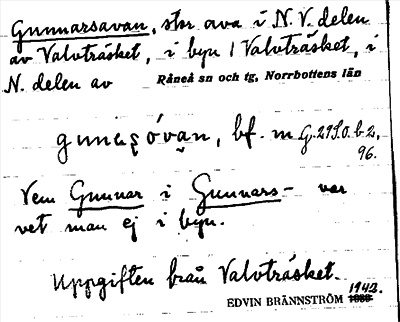 Gunnarsavan, stor ava i N.V. delen
av Valvträsket, i byn Valvträsket, i
N. delen av Råneå sn och tg, Norrbottens län
bf. m
96.
Vem Gunnar i Gunnars- var
vet man ej i byn.
Uppgiften från Valvträsket.
EDVIN BRÄNNSTRÖM 1942.